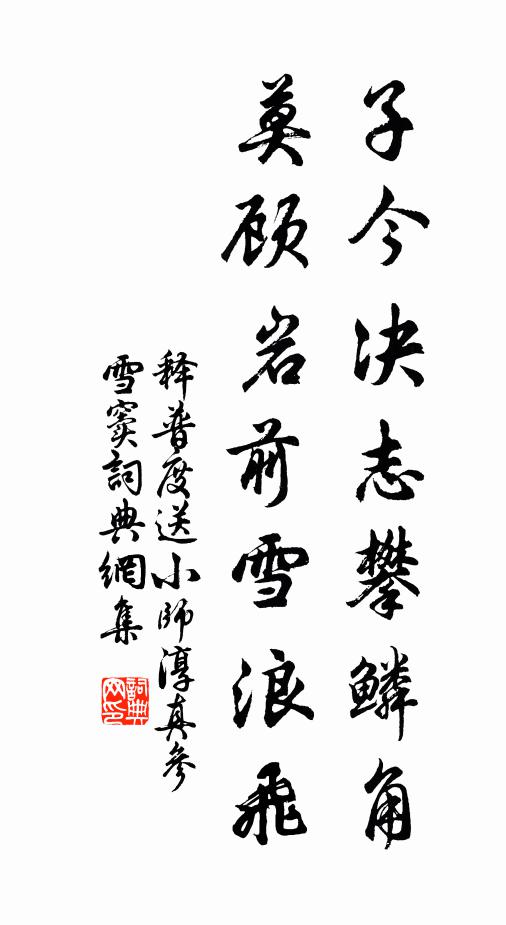 子今决志攀鳞角
莫顾岩前雪浪飛
释普度送小師淳真參
雪窦詞典網集
詞典
网印